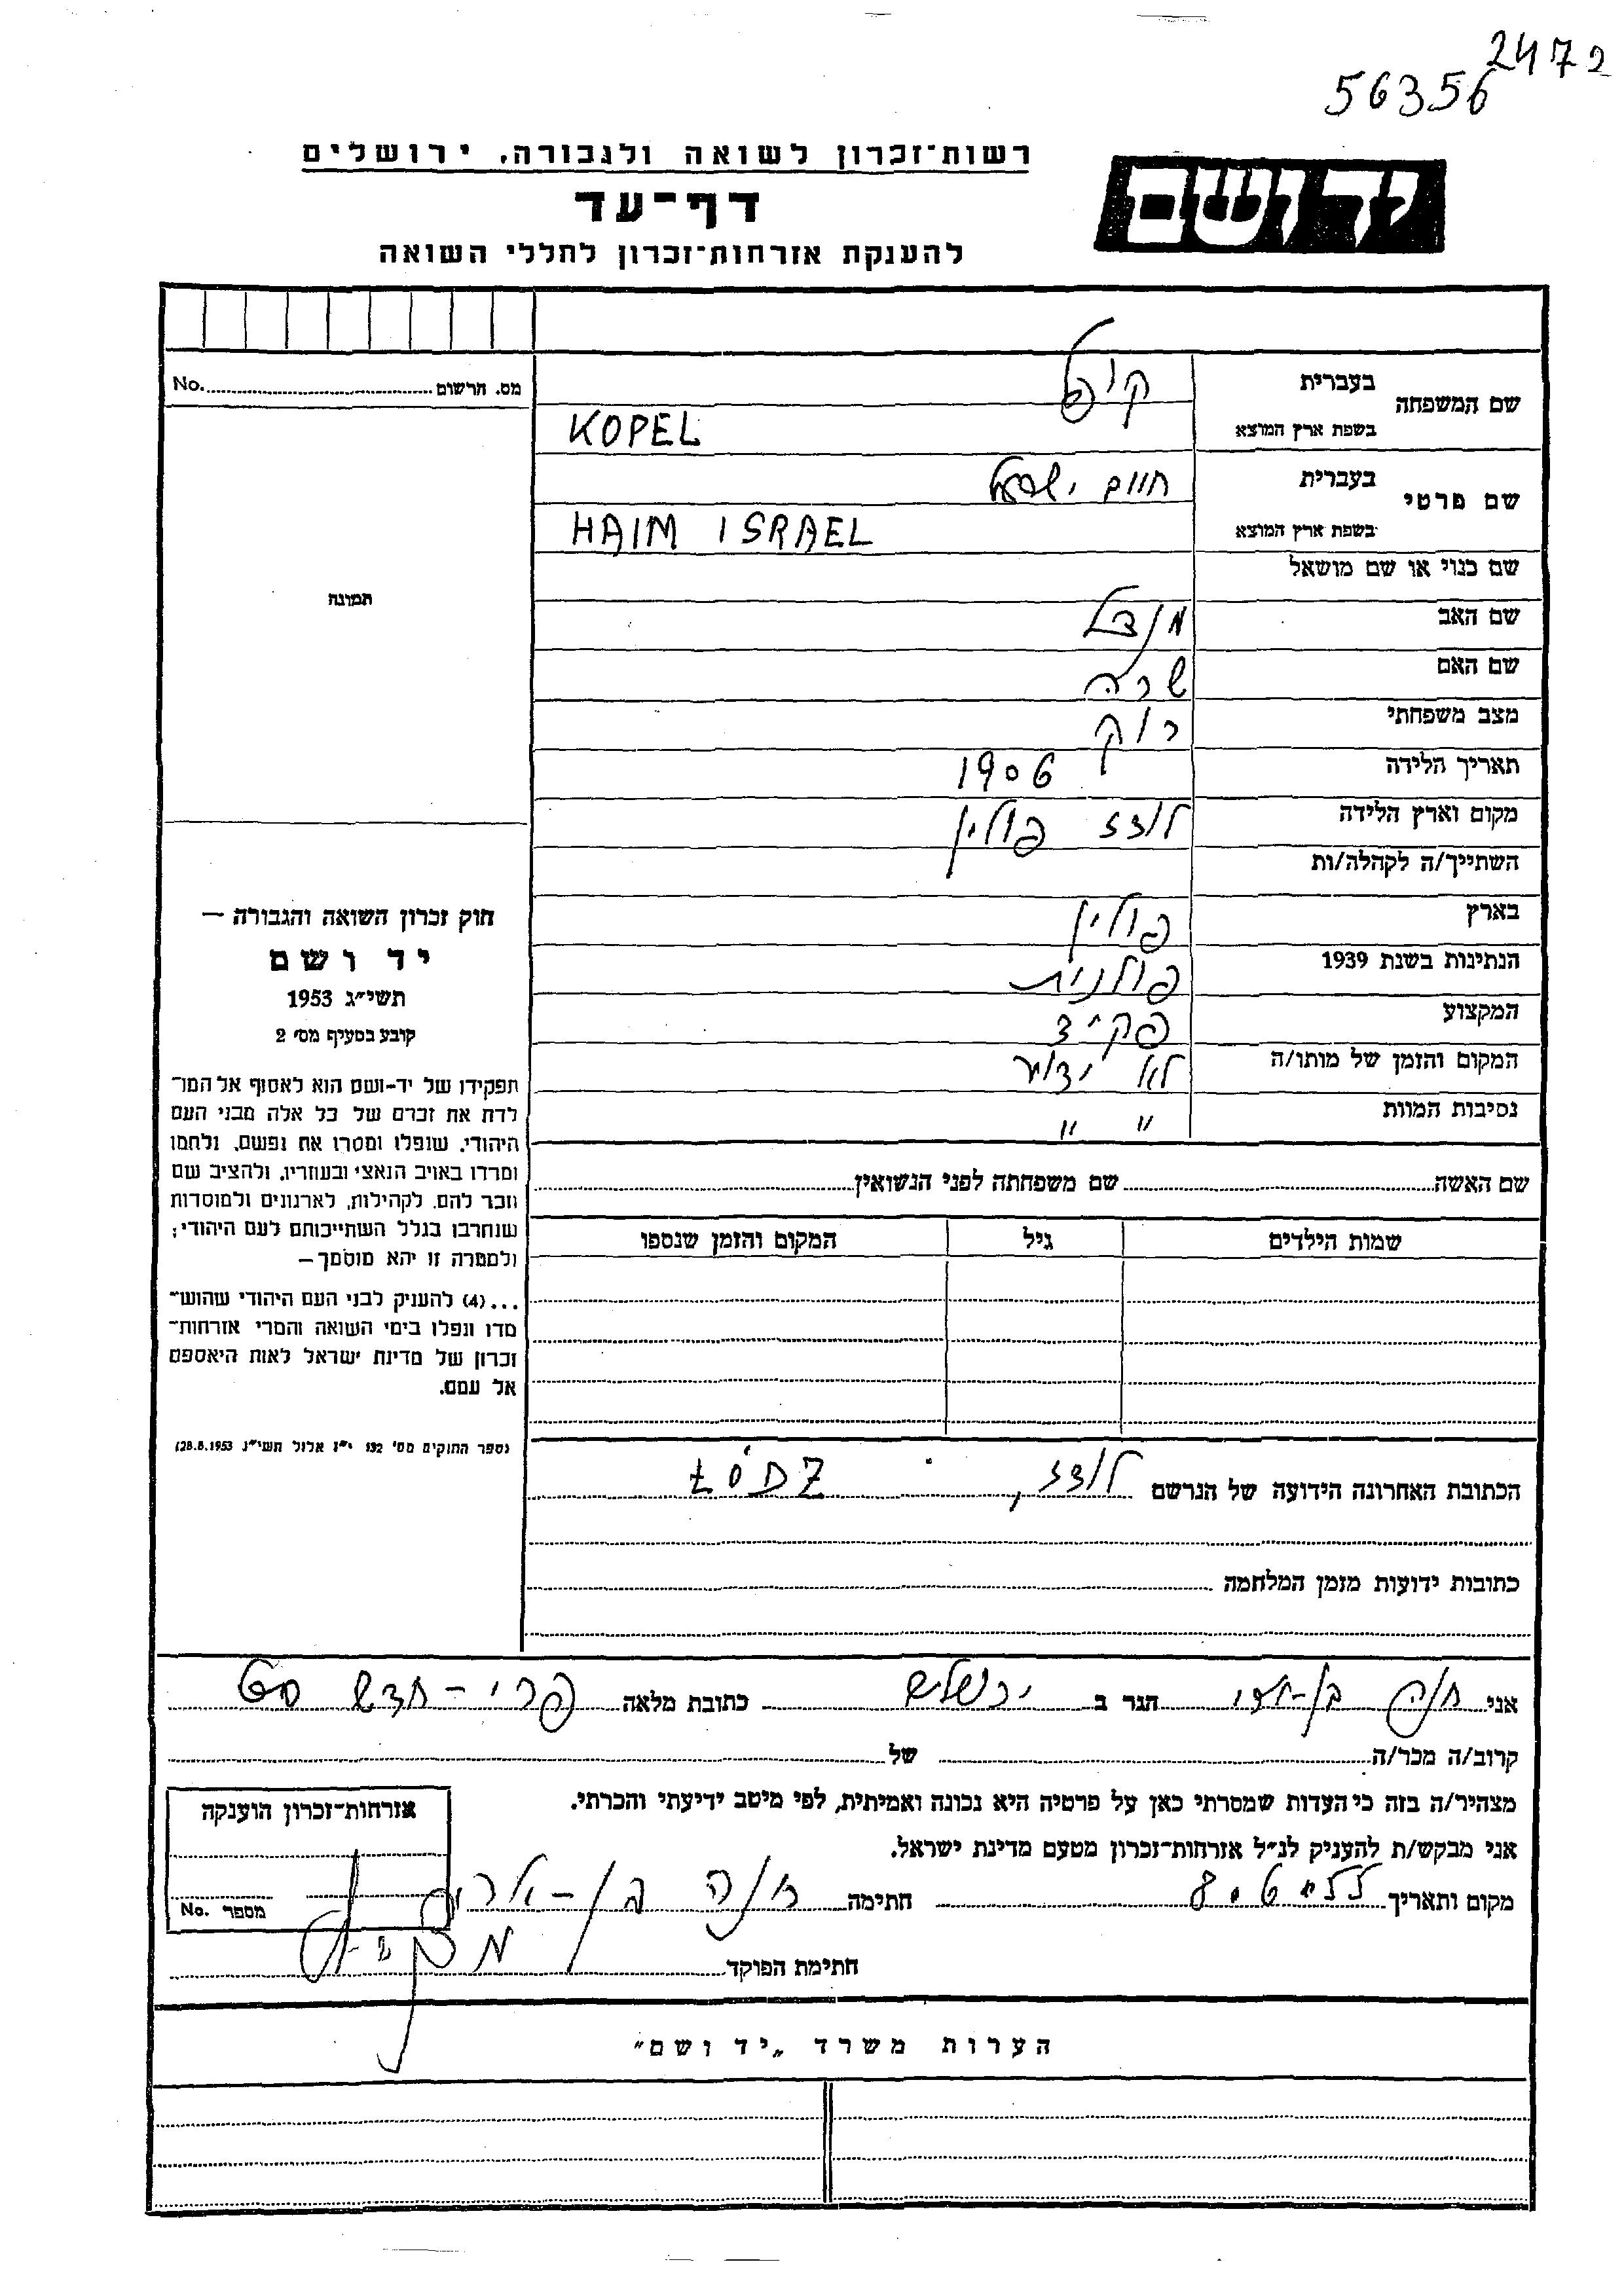 2472
56356
רשות־זכרון לשואה ולגבורה, ירושלים
יד ושם
דף־עד
להענקת אזרחות־זכרון לחללי השואה
מס. הרשום No.
שם המשפחה בעברית קופל
בשפת ארץ המוצא KOPEL
שם פרטי בעברית חיים ישראל
בשפת ארץ המוצא HAIM ISRAEL
שם כנוי או שם מושאל
תמונה
שם האב מנדל
שם האם שרה
מצב משפחתי רוק
תאריך הלידה 1906
מקום וארץ הלידה לודז פולין
השתייך/ה לקהלה/ות
בארץ פולין
הנתינות בשנת 1939 פולנית
המקצוע פקיד
המקום והזמן של מותו/ה לא ידוע
נסיבות המוות " "
חוק זכרון השואה והגבורה —
יד ושם
תשי״ג 1953
קובע בסעיף מס׳ 2
תפקידו של יד-ושם הוא לאסוף אל המו־
לדת את זכרם של כל אלה מבני העם
היהודי, שנפלו ומסרו את נפשם, נלחמו
ומרדו באויב הנאצי ובעוזריו, ולהציב שם
וזכר להם, לקהילות, לארגונים ולמוסדות
שנחרבו בגלל השתייכותם לעם היהודי;
ולמטרה זו יהא מוסמך —
...(4) להעניק לבני העם היהודי שהוש־
מדו ונפלו בימי השואה והמרי אזרחות־
זכרון של מדינת ישראל לאות היאספם
אל עמם.
(ספר החוקים מס׳ 132 י״ז אלול תשי״ג 28.8.1953)
שם האשה שם משפחתה לפני הנשואין
שמות הילדים גיל המקום והזמן שנספו
הכתובת האחרונה הידועה של הנרשם לודז, ŁÓDŹ
כתובות ידועות מזמן המלחמה
אני חנה הגר ב ירושלים כתובת מלאה פרי-חדש
קרוב/ה מכר/ה של
מצהיר/ה בזה כי העדות שמסרתי כאן על פרטיה היא נכונה ואמיתית, לפי מיטב ידיעתי והכרתי.
אני מבקש/ת להעניק לנ״ל אזרחות־זכרון מטעם מדינת ישראל.
מקום ותאריך חתימה חנה
אזרחות־זכרון הוענקה
מספר No.
חתימת הפוקד
הערות משרד „יד ושם"